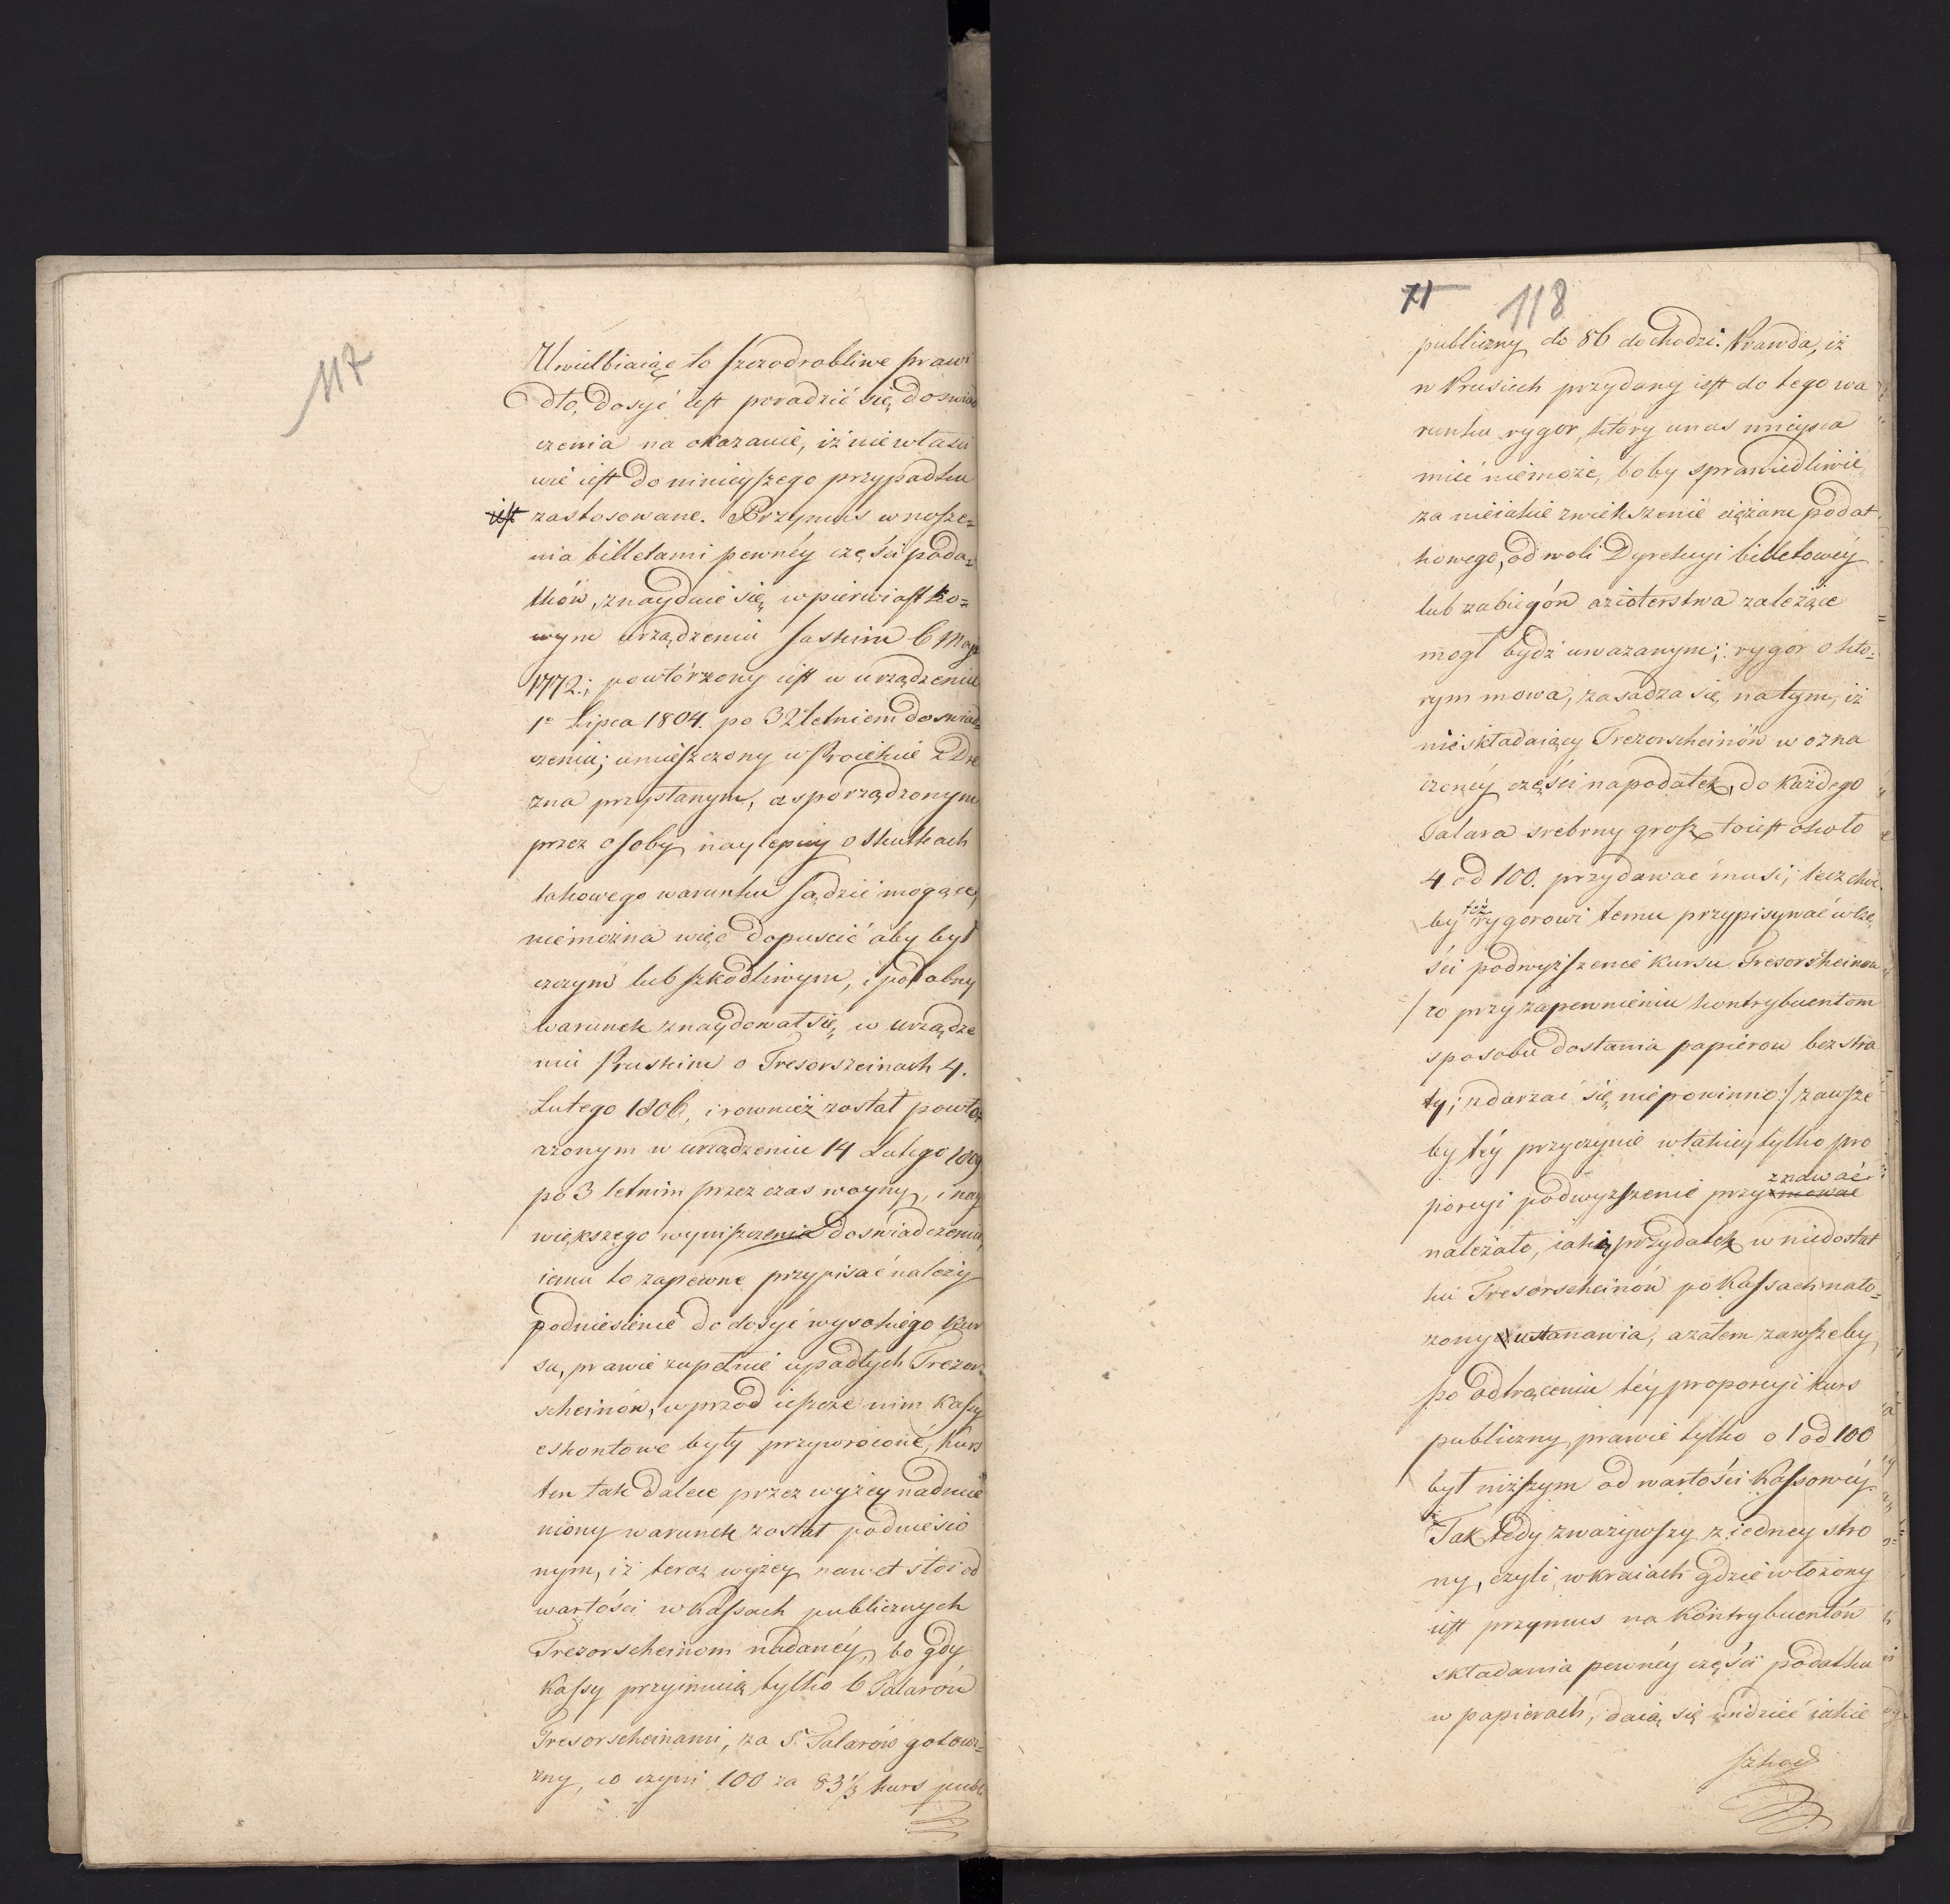 117
Uwielbiaiąc to szczodrobliwe prawi
dło, dosyć iest poradzić się doświad
czenia na okazanie, iż niewłaści
wie iest do ninieyszego przypadku
iest zastosowane. Przymus wnosze=
nia billetami pewnéy części poda=
tków, znayduie się w pierwiastko=
wym urządzeniu saskim 6 Maja
1772.; powtórzony iest w urządzeniu
1o Lipca 1804. po 32 letniem doświad=
czeniu; umieszczony w Proiekcie z Dre
zna przysłanym, a sporządzonym
przez osoby naylepiey o skutkach
takowego warunku sądzić mogące,
niemożna więc dopuscić aby był
czczym lub szkodliwym, i podobny
warunek znaydował się w urządze
niu Pruskim o Tresorszeinach 4.
Lutego 1806, i rownież został powtó
rzonym w urządzeniu 14 Lutego 1809
po 3 letnim przez czas woyny, i nay
większego wyniszczenia doświadczeniu,
iemu to zapewne przypisać należy
podniesienie do dosyć wysokiego kur
su, prawie zupełnie upadłych Trezor
scheinów, wprzód ieszcze nim Kassy
eskontowe były przywrócone, kurs
ten tak dalece przez wyżey nadmie
niony warunek został podniesio
nym, iż teraz wyżey nawet stoi od
wartości w Kassach publicznych
Trezorscheinom nadanéy, bo gdy
Kassy przyimuią tylko 6 Talarów
Tresorscheinami, za 5. Talarów gotowi=
zny, co czyni 100 za 83 1/3 kurs publi
71 118
publiczny do 86 dochodzi. Prawda, iż
w Prusiech przydany iest do tego wa
runku rygor, który u nas mieysca
mieć niemoże, boby sprawiedliwie
za nieiakie zwiekszenie ciężaru podat
kowego, od woli Dyrekcyi billetowéy
lub zabiegów azioterstwa zależące
mogł bydź uwazanym; rygor o któ=
rym mowa, zasadza się na tym, iż
nieskładaiący Trezorscheinów w ozna
czonéy części na podatek, do każdego
Talara srebrny grosz to iest około
4 od 100. przydawać musi; lecz choć
by też rygorowi temu przypisywać w czę
ści podwyższenie kursu Tresorsheinów
/co przy zapewnieniu kontrybuentom
sposobu dostania papierow bez stra
ty; zdarzać się niepowinno/ zawsze
by téy przyczynie w takiey tylko pro
porcyi podwyższenie przyznawać
należało, iaką przydatek w niedostat
ku Tresorscheinów po Kassach nało=
zony ustanawia, a zatem zawszeby
po odtrąceniu téy proporcyi kurs
publiczny prawie tylko o 1 od 100
był niższym od wartości Kassowéy.
Tak tedy zważywszy z iedney stro
ny, czyli w kraiach gdzie włożony
iest przymus na kontrybuentów
składania pewnéy części podatku
w papierach, daią się widzieć iakie
szkod